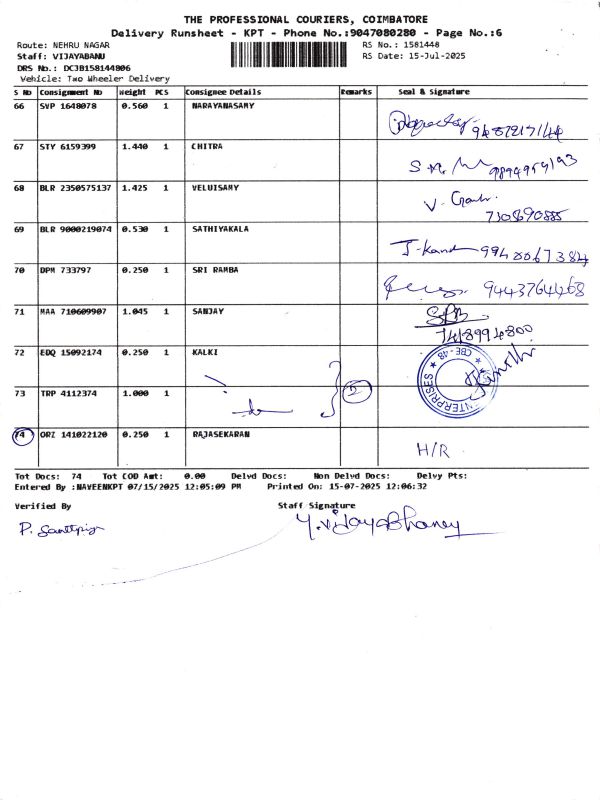 THE PROFESSIONAL COURIERS, COIMBATORE
Delivery Runsheet - KPT - Phone No.:9047080280 - Page No.:6
Route: NEHRU NAGAR RS No.: 1581448
Staff: VIJAYABANU RS Date: 15-Jul-2025
DRS No.: DCJB158144806
Vehicle: Two Wheeler Delivery
S No Consignment No Weight PCS Consignee Details Remarks Seal & Signature
66 SVP 1648078 0.560 1 NARAYANASAMY
67 STY 6159399 1.440 1 CHITRA
68 BLR 2350575137 1.425 1 VELUISAMY
7308690885
69 BLR 9000219074 0.530 1 SATHIYAKALA
70 DPM 733797 0.250 1 SRI RAMBA 9443764468
71 MAA 710609907 1.045 1 SANJAY
7418994800
72 EDQ 15092174 0.250 1 KALKI
73 TRP 4112374 1.000 1
CBE-48
ENTERPRISES
74 ORZ 141022120 0.250 1 RAJASEKARAN
H/R
Tot Docs: 74 Tot COD Amt: 0.00 Delvd Docs: Non Delvd Docs: Delvy Pts:
Entered By :NAVEENKPT 07/15/2025 12:05:09 PM Printed On: 15-07-2025 12:06:32
Verified By Staff Signature